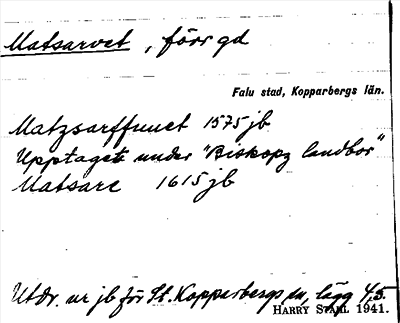 Matsarvet, förr gd
Falu stad, Kopparbergs län.
Matzsarffuuet 1575 jb
Upptaget under "Biskopz landbor"
Matsare 1615 jb
Utdr. ur jb för St. Kopparbergs sn, lägg 45.
HARRY STÅHL 1941.